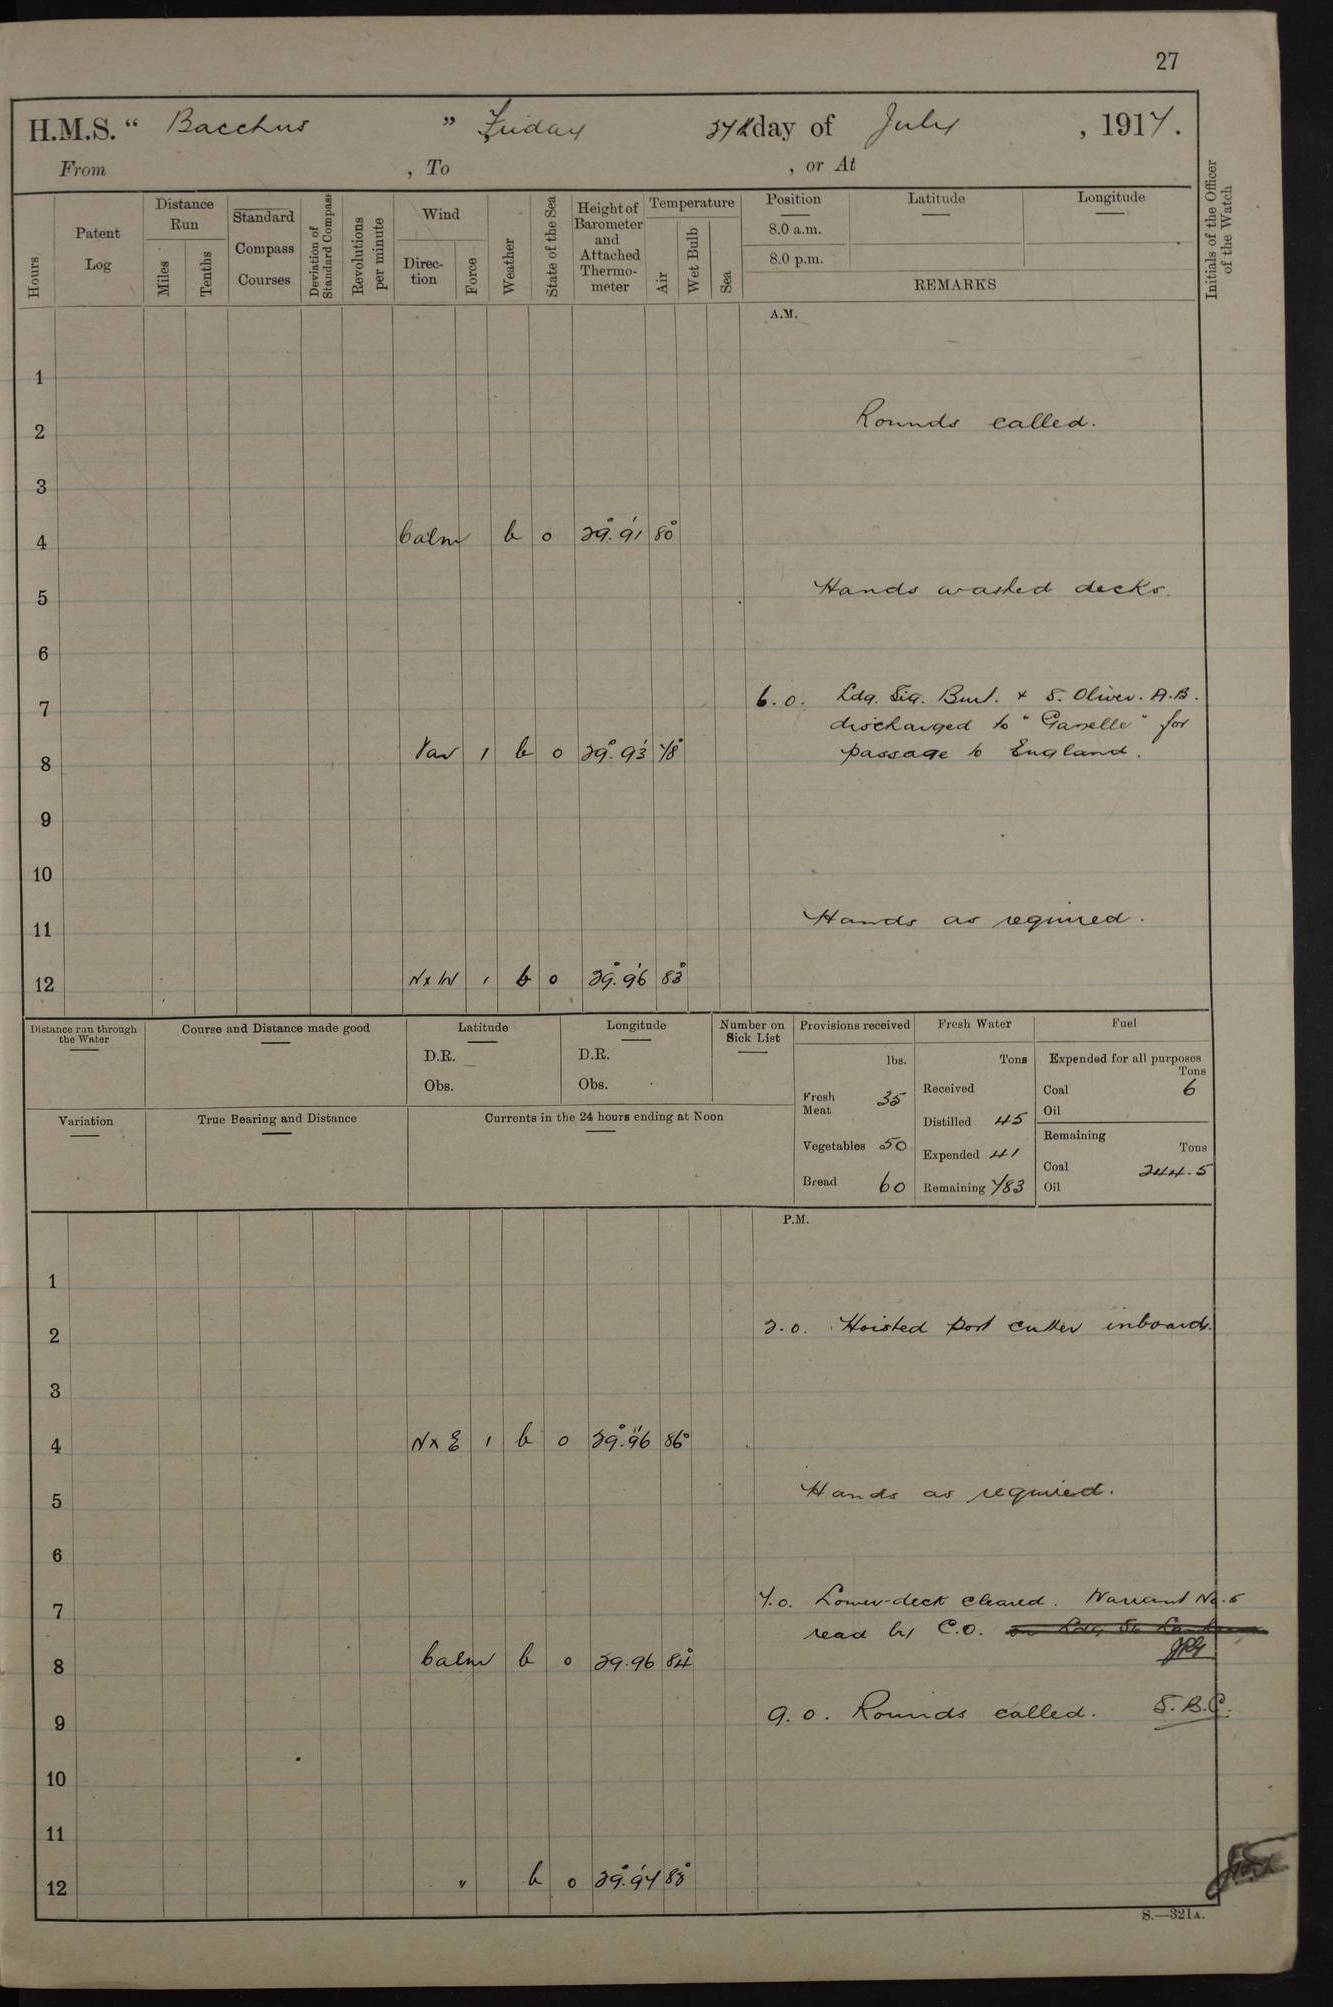 27
H.M.S. " Bacchus " Friday 27th day of July, 1917.
From , To , or At
Hours
Patent Log
Distance Run
Miles
Tenths
Standard Compass Courses
Deviation of Standard Compass
Revolutions per minute
Wind
Direction
Force
Weather
State of the Sea
Height of Barometer and Attached Thermometer
Temperature
Air
Wet Bulb
Sea
Position
8.0 a.m.
8.0 p.m.
Latitude
Longitude
REMARKS
Initials of the Officer of the Watch
A.M.
1
2 Rounds called.
3
4 Calm b 0 29.91 80
5 Hands washed decks.
6
6.0. Ldg. Sig. Burt. + S. Oliver. A.B.
7 discharged to "Gazelle" for
8 Var 1 b 0 29.93 78 passage to England.
9
10
11 Hands as required.
12 N x W 1 b 0 29.96 83
Distance run through the Water
Course and Distance made good
Latitude
D.R.
Obs.
Longitude
D.R.
Obs.
Number on Sick List
Provisions received
lbs.
Fresh Meat 35
Vegetables 50
Bread 60
Fresh Water
Tons
Received
Distilled 45
Expended 41
Remaining 783
Fuel
Expended for all purposes
Tons
Coal 6
Oil
Remaining
Tons
Coal 244.5
Oil
Variation
True Bearing and Distance
Currents in the 24 hours ending at Noon
P.M.
1
2 2.0. Hoisted port cutter inboard.
3
4 N x E 1 b 0 29.96 86°
5 Hands as required.
6
7 7.0. Lower-deck cleared. Warrant No. 5
read by C.O.
8 Calm b 0 29.96 84
9 9.0. Rounds called. S.B.C.
10
11
12 " b 0 29.97 83
S.—321A.